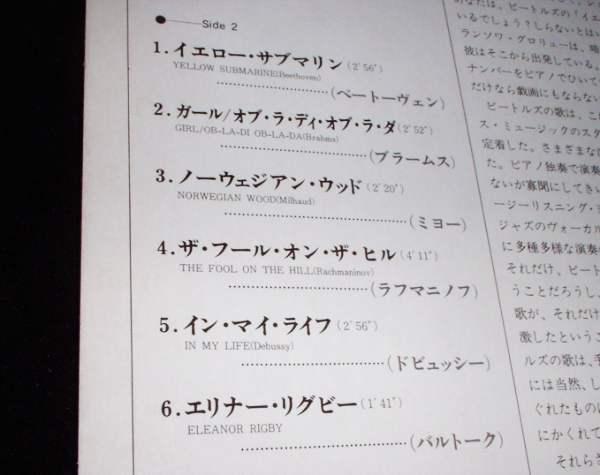 Side 2
1.イエロー・サブマリン(2'56")
YELLOW SUBMARINE(Beethoven)
(ベートーヴェン)
2.ガール/オブ・ラ・ディ・オブ・ラ・ダ(2'52")
GIRL/OB-LA-DI OB-LA-DA(Brahms)
(ブラームス)
3.ノーウェジアン・ウッド(2'20")
NORWEGIAN WOOD(Milhaud)
(ミヨー)
4.ザ・フール・オン・ザ・ヒル(4'11")
THE FOOL ON THE HILL(Rachmaninov)
(ラフマニノフ)
5.イン・マイ・ライフ(2'56")
IN MY LIFE(Debussy)
(ドビュッシー)
6.エリナー・リグビー(1'41")
ELEANOR RIGBY
(バルトーク)
あなたは、ビートルズの「イエ
いるでしょう?しらないとはい
ランソワ・グロリューは、暗
彼はそこから出発している。
ナンバーをピアノでひいて
だけなら戯画にもならない
ビートルズの歌は、こ
ス・ミュージックのスタ
定着した。さまざまな
た。ピアノ独奏で演奏
ないが寡聞にしてき
ージーリスニング・
ジャズのヴォーカル
に多種多様な演奏
それだけ、ビート
うことだろうし、
歌が、それだけ
激したというこ
ルズの歌は、
には当然、し
ぐれたものは
にかくれて
それらさ